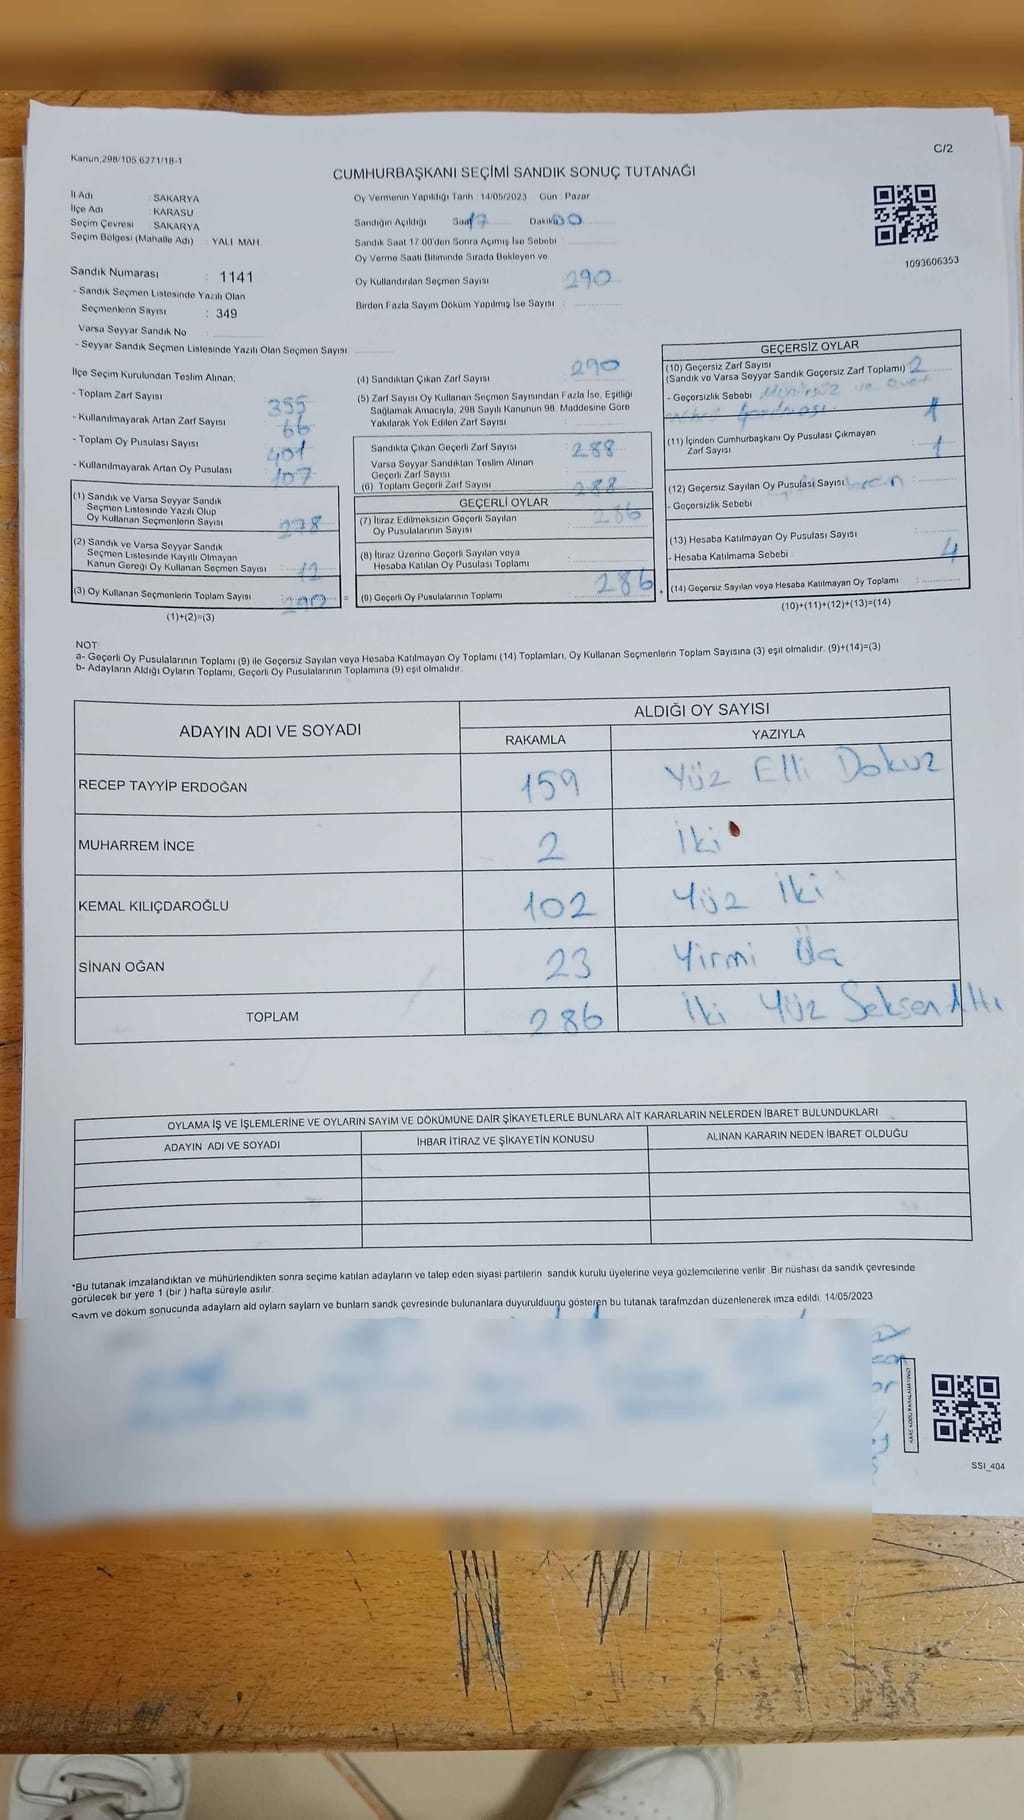 Kanun,298/105,6271/18-1
C/2
CUMHURBAŞKANI SEÇİMİ SANDIK SONUÇ TUTANAĞI
İl Adı : SAKARYA
İlçe Adı : KARASU
Seçim Çevresi : SAKARYA
Seçim Bölgesi (Mahalle Adı) : YALI MAH.
Sandık Numarası : 1141
- Sandık Seçmen Listesinde Yazılı Olan
Seçmenlerin Sayısı : 349
Varsa Seyyar Sandık No
- Seyyar Sandık Seçmen Listesinde Yazılı Olan Seçmen Sayısı
Oy Vermenin Yapıldığı Tarih : 14/05/2023 Gün : Pazar
Sandığın Açıldığı Saat 17 Dakika 00
Sandık Saat 17 00'den Sonra Açımış İse Sebebi
Oy Verme Saati Bitiminde Sırada Bekleyen ve
Oy Kullandırılan Seçmen Sayısı 290
Birden Fazla Sayım Döküm Yapılmış İse Sayısı
1093606353
İlçe Seçim Kurulundan Teslim Alınan;
- Toplam Zarf Sayısı 355
- Kullanılmayarak Artan Zarf Sayısı 66
- Toplam Oy Pusulası Sayısı 401
- Kullanılmayarak Artan Oy Pusulası 107
(1) Sandık ve Varsa Seyyar Sandık
Seçmen Listesinde Yazılı Olup
Oy Kullanan Seçmenlerin Sayısı 278
(2) Sandık ve Varsa Seyyar Sandık
Seçmen Listesinde Kayıtlı Olmayan
Kanun Gereği Oy Kullanan Seçmen Sayısı 12
(3) Oy Kullanan Seçmenlerin Toplam Sayısı 290
(1)+(2)=(3)
(4) Sandıktan Çıkan Zarf Sayısı 290
(5) Zarf Sayısı Oy Kullanan Seçmen Sayısından Fazla İse, Eşitliği
Sağlamak Amacıyla, 298 Sayılı Kanunun 98. Maddesine Göre
Yakılarak Yok Edilen Zarf Sayısı
Sandıkta Çıkan Geçerli Zarf Sayısı 288
Varsa Seyyar Sandıktan Teslim Alınan
Geçerli Zarf Sayısı
(6) Toplam Geçerli Zarf Sayısı 288
GEÇERLİ OYLAR
(7) İtiraz Edilmeksizin Geçerli Sayılan
Oy Pusulalarının Sayısı 286
(8) İtiraz Üzerine Geçerli Sayılan veya
Hesaba Katılan Oy Pusulası Toplamı
=
(9) Geçerli Oy Pusulalarının Toplamı 286
+
GEÇERSİZ OYLAR
(10) Geçersiz Zarf Sayısı
(Sandık ve Varsa Seyyar Sandık Geçersiz Zarf Toplamı) 2
- Geçersizlik Sebebi Mühürsüz ve
1
(11) İçinden Cumhurbaşkanı Oy Pusulası Çıkmayan
Zarf Sayısı 1
(12) Geçersiz Sayılan Oy Pusulası Sayısı
- Geçersizlik Sebebi
(13) Hesaba Katılmayan Oy Pusulası Sayısı
- Hesaba Katılmama Sebebi 4
(14) Geçersiz Sayılan veya Hesaba Katılmayan Oy Toplamı
(10)+(11)+(12)+(13)=(14)
NOT:
a- Geçerli Oy Pusulalarının Toplamı (9) ile Geçersiz Sayılan veya Hesaba Katılmayan Oy Toplamı (14) Toplamları, Oy Kullanan Seçmenlerin Toplam Sayısına (3) eşit olmalıdır. (9)+(14)=(3)
b- Adayların Aldığı Oyların Toplamı, Geçerli Oy Pusulalarının Toplamına (9) eşit olmalıdır.
ADAYIN ADI VE SOYADI
ALDIĞI OY SAYISI
RAKAMLA YAZIYLA
RECEP TAYYİP ERDOĞAN 159 Yüz Elli Dokuz
MUHARREM İNCE 2 İki
KEMAL KILIÇDAROĞLU 102 Yüz İki
SİNAN OĞAN 23 Yirmi Üç
TOPLAM 286 İki Yüz Seksen Altı
OYLAMA İŞ VE İŞLEMLERİNE VE OYLARIN SAYIM VE DÖKÜMÜNE DAİR ŞİKAYETLERLE BUNLARA AİT KARARLARIN NELERDEN İBARET BULUNDUKLARI
ADAYIN ADI VE SOYADI İHBAR İTİRAZ VE ŞİKAYETİN KONUSU ALINAN KARARIN NEDEN İBARET OLDUĞU
*Bu tutanak imzalandıktan ve mühürlendikten sonra seçime katılan adayların ve talep eden siyasi partilerin sandık kurulu üyelerine veya gözlemcilerine verilir. Bir nüshası da sandık çevresinde
görülecek bir yere 1 (bir) hafta süreyle asılır.
Sayım ve döküm sonucunda adayların ald oyların sayların ve bunların sandk çevresinde bulunanlara duyurulduunu gösteren bu tutanak tarafmzdan düzenlenerek imza edildi. 14/05/2023
KARE KODU KARALAMAYINIZ!
SSI_404